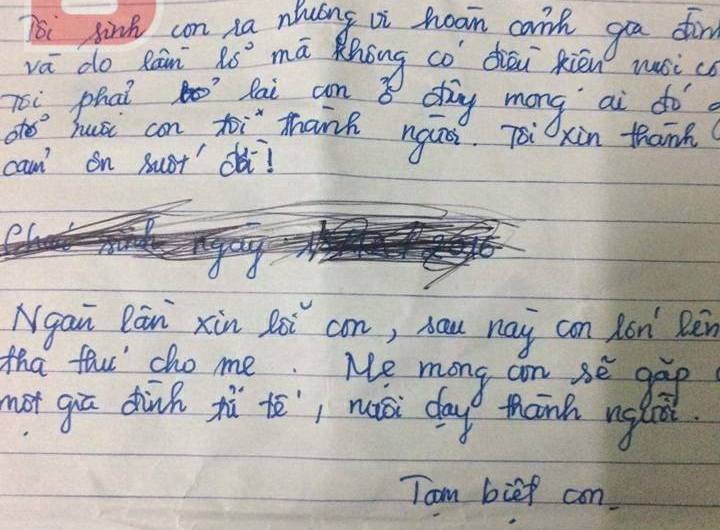 Tôi sinh con ra nhưng vì hoàn cảnh gia đình
và do lầm lỡ mà không có điều kiện nuôi co
Tôi phải bỏ lại con ở đây mong ai đó
đỡ nuôi con tôi thành người. Tôi xin thành
cảm ơn suốt đời!
sinh ngày 2016
Ngàn lần xin lỗi con, sau này con lớn lên
tha thứ cho mẹ. Mẹ mong con sẽ gặp
một gia đình tử tế, nuôi dạy thành người.
Tạm biệt con.